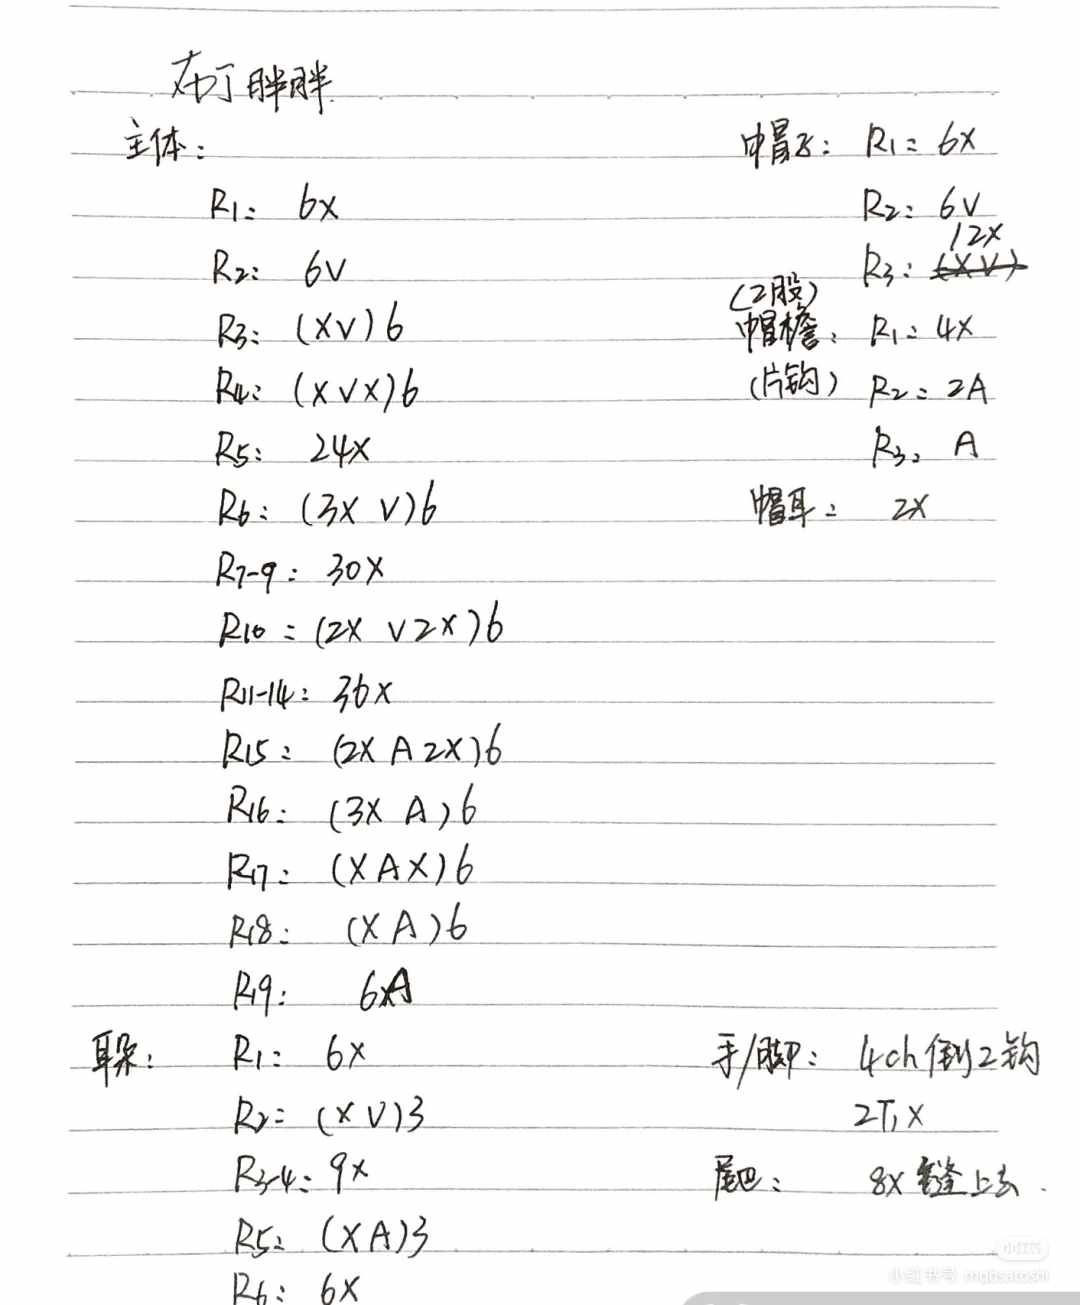 布丁胖胖
主体:
R1: 6x
R2: 6V
R3: (XV)6
R4: (XVX)6
R5: 24X
R6: (3X V)6
R7-9: 30X
R10: (2X V 2X)6
R11-14: 36X
R15: (2X A 2X)6
R16: (3X A)6
R17: (X A X)6
R18: (X A)6
R19: 6A
耳朵: R1: 6X
R2: (X V)3
R3-4: 9X
R5: (X A)3
R6: 6X
帽子: R1: 6X
R2: 6V
12X
R3: (X V)
(2股)
帽檐: R1: 4X
(片钩) R2: 2A
R3: A
帽耳: 2X
手/脚: 4ch 倒2钩
2T, X
尾巴: 8X 缝上去.
小红书
小红书号 mgbsatoshi